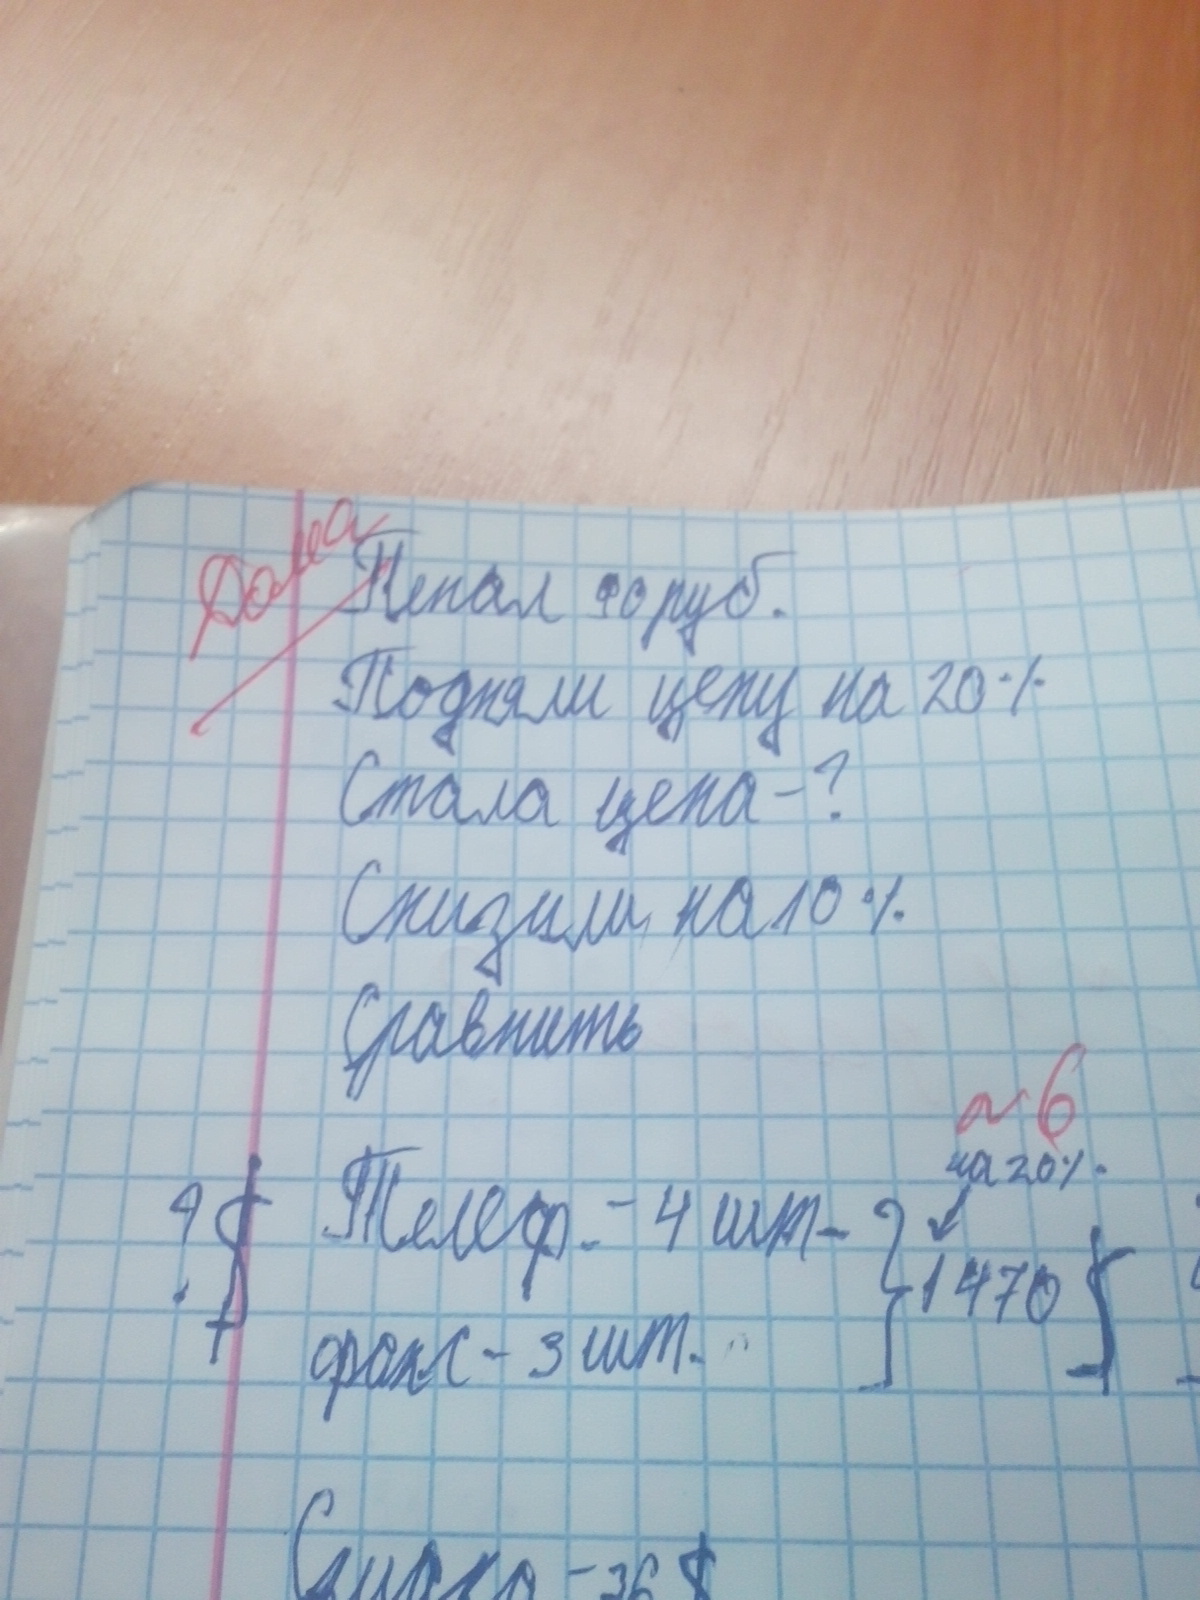 Дома
Пенал 90 руб.
Подняли цену на 20%
Стала цена-?
Снизили на 10%
Сравнить
~6
на 20%
Телеф. - 4 шт-
1470
факс - 3 шт.
- 36 $